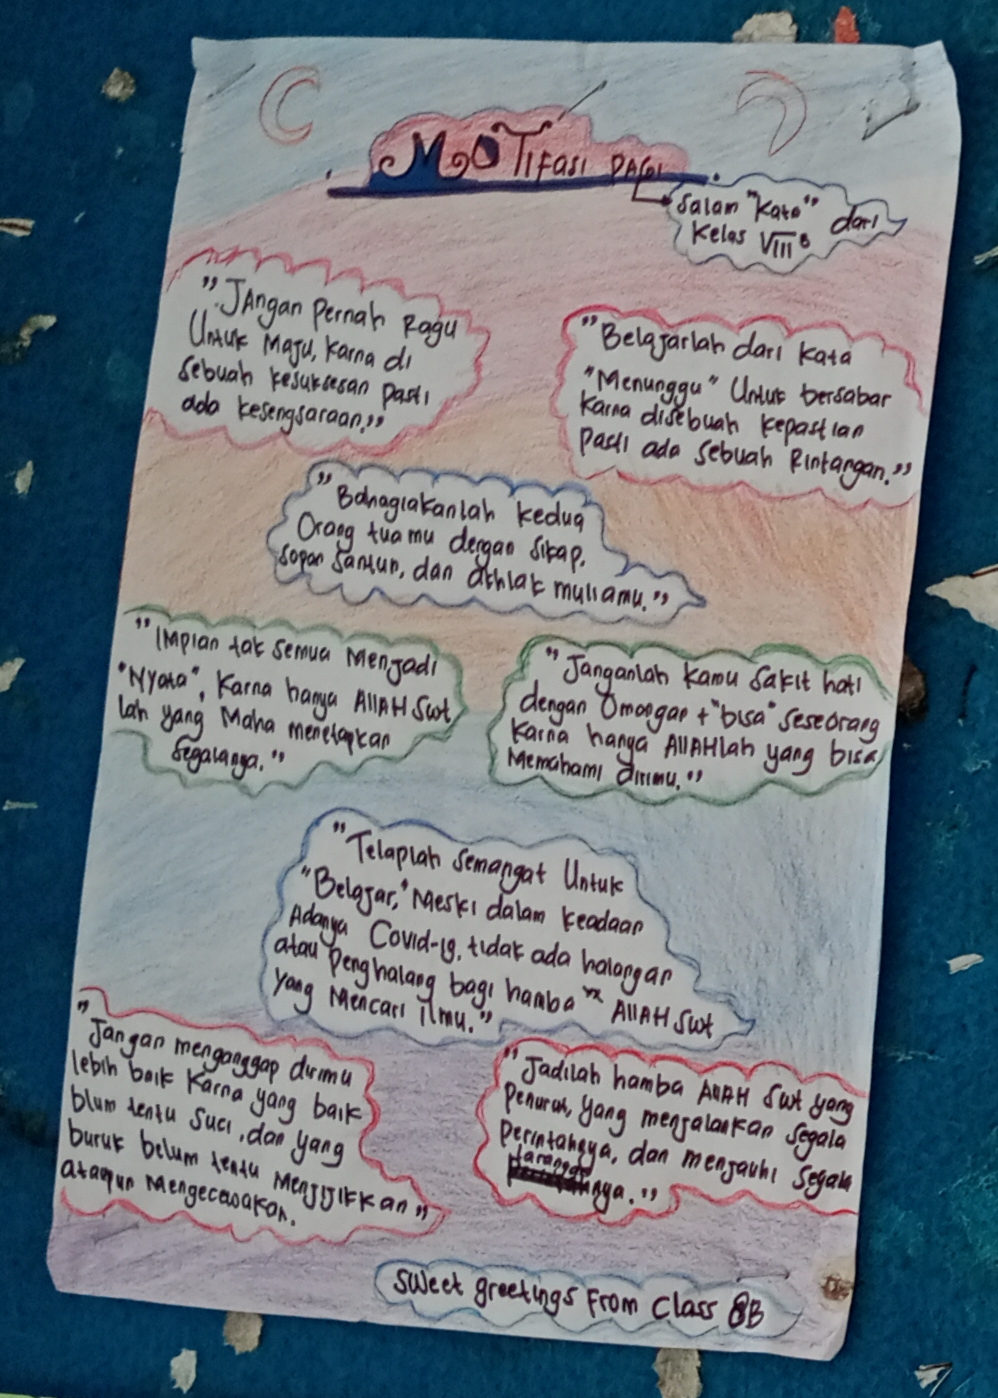 MOTIFASI PAGI
Salam "Kata" dari
Kelas VIII B
"JAngan Pernah Ragu
Untuk Maju, karna di
Sebuah kesuksesan Pasti
ada kesengsaraan."
"Belajarlah dari kata
"Menunggu" Untuk bersabar
karna disebuah kepastian
Pasti ada sebuah Rintangan."
"Bahagiakanlah kedua
Orang tuamu dengan sikap,
sopan santun, dan akhlak muliamu."
"Impian tak semua Menjadi
"Nyata", karna hanya AllAH swt
lah yang Maha menetapkan
segalanya."
"Janganlah kamu sakit hati
dengan Omongan + "bisa" seseorang
karna hanya AllAHlah yang bisa
Memahami dirimu."
"Tetaplah semangat Untuk
"Belajar," Meski dalam keadaan
Adanya Covid-19, tidak ada halangan
atau Penghalang bagi hamba" AllAH swt
yang Mencari ilmu."
"Jangan menganggap dirimu
lebih baik karna yang baik
blum tentu suci, dan yang
buruk belum tentu Menjijikkan"
ataupun Mengecewakan.
"Jadilah hamba AllAH swt yang
Penurut, yang menjalankan segala
Perintahnya, dan menjauhi segala
larangannya."
sweet greetings From Class 8B